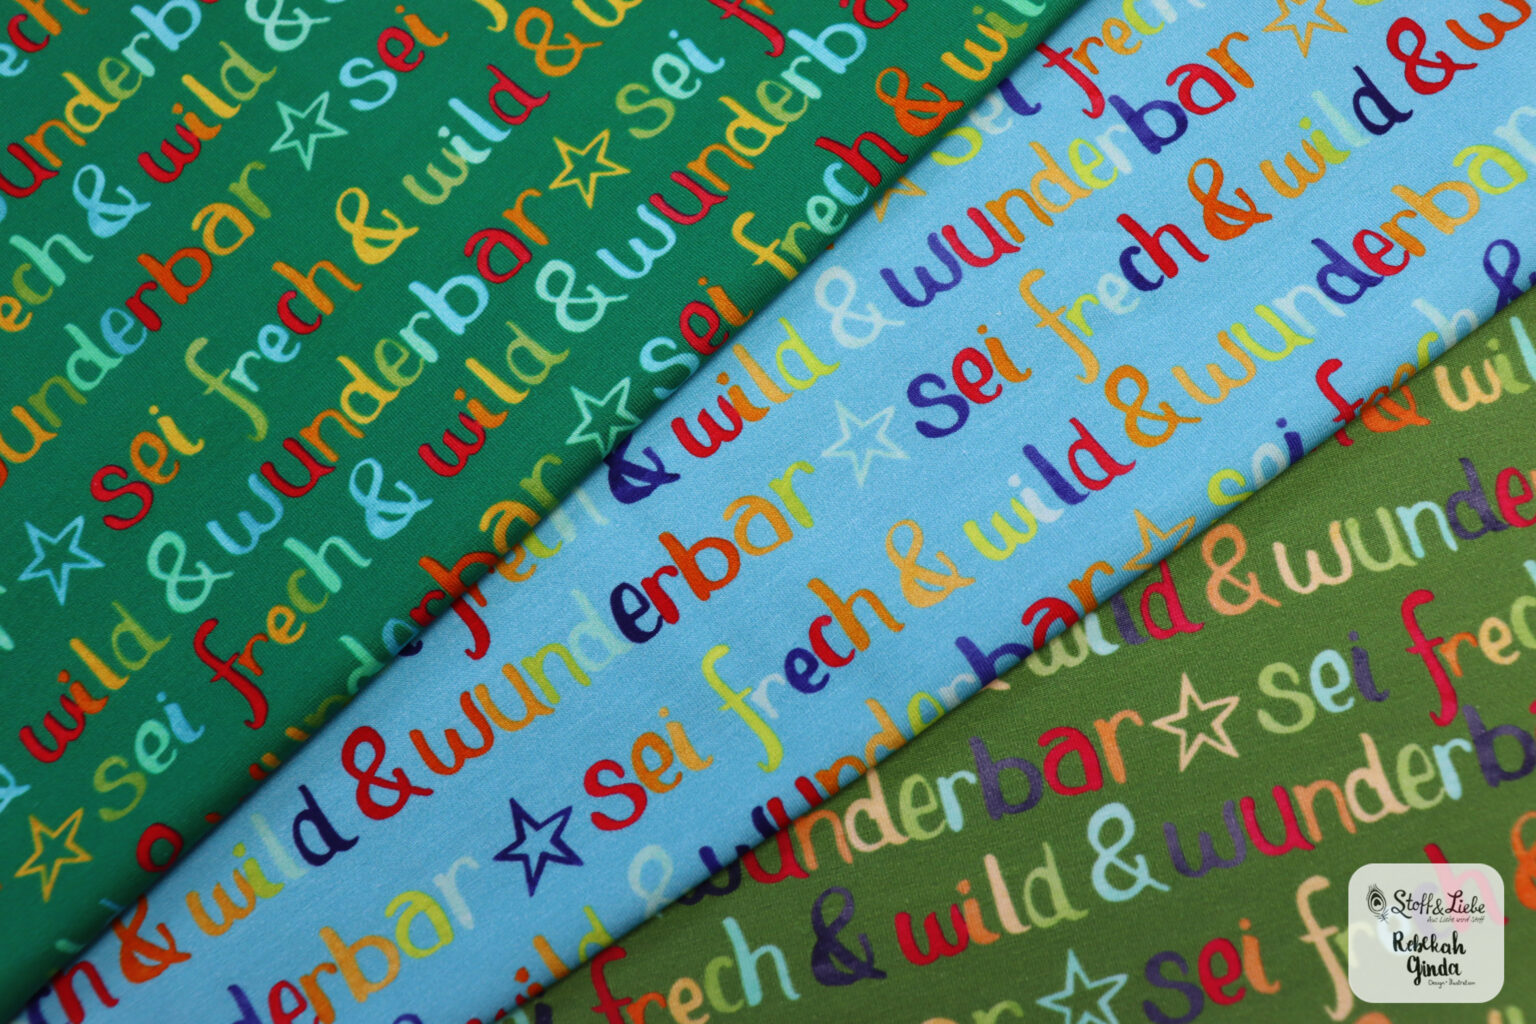 wunderb
& sei fr
wild & w
frech & wild
wunderbar ☆ sei
frech & wild & wunderb
wunderbar ☆ sei frech & wil
sei frech & wild & wunderbar
☆ sei frech & wunderbar ☆ sei
wild & wunderbar
sei frech & wild
& wild & wunderbar
& wunderbar ☆ sei frech & wild
& wild & wunderbar ☆ sei frech & wild & wunder
☆ sei frech & wild & wunderbar
wild & wunder
wunderbar ☆ sei frech
frech & wild & wunderb
☆ sei fr
Stoff & Liebe
Aus Liebe wird Stoff
Rebekah
Ginda
Design • Illustration